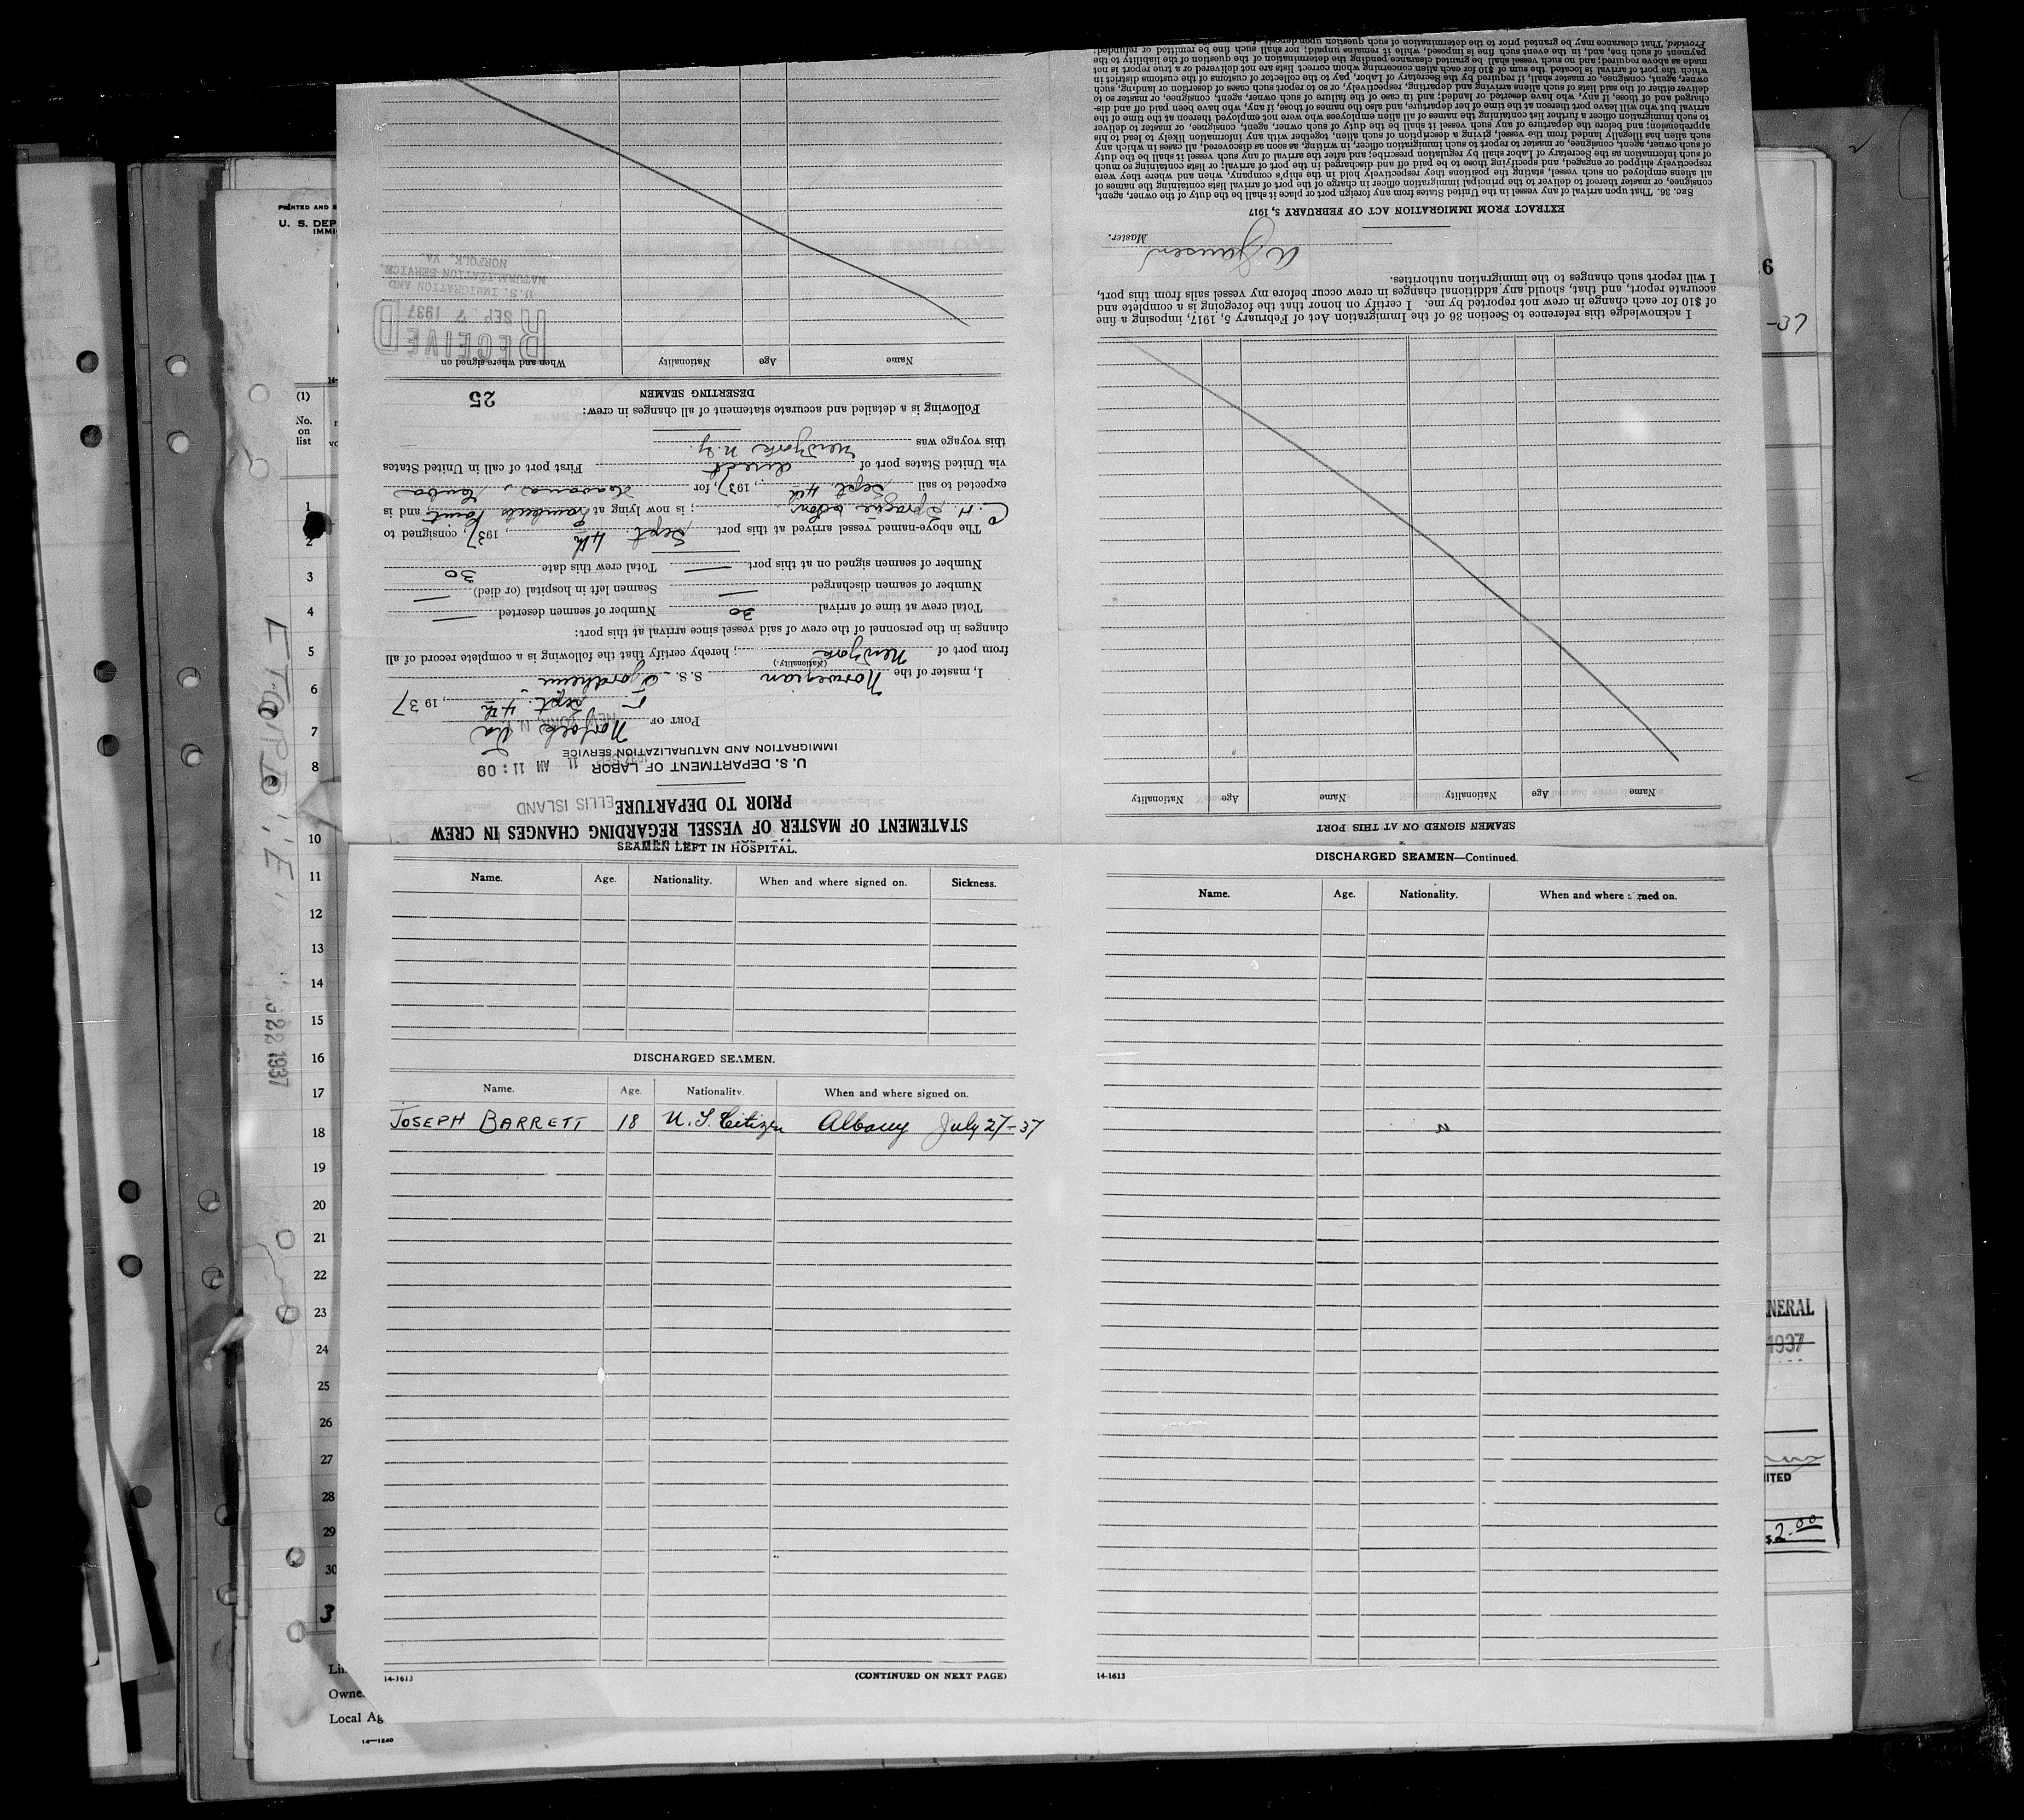 STATEMENT OF MASTER OF VESSEL REGARDING CHANGES IN CREW
PRIOR TO DEPARTURE
ELLIS ISLAND
U. S. DEPARTMENT OF LABOR
11 AM 11:09
IMMIGRATION AND NATURALIZATION SERVICE
PORT OF Norfolk Va
NEW YORK, N.
Sept. 4th, 1937
I, master of the Norwegian S. S.
(Nationality.)
from port of New York, hereby certify that the following is a complete record of all
changes in the personnel of the crew of said vessel since arrival at this port:
Total crew at time of arrival 30 Number of seamen deserted —
Number of seamen discharged — Seamen left in hospital (or died) —
Number of seamen signed on at this port — Total crew this date 30
The above-named vessel arrived at this port Sept. 4th, 1937, consigned to
C. H. Sprague & Son; is now lying at Lamberts Point, and is
expected to sail Sept. 4th, 1937, for Havana, Couba
via United States port of direct First port of call in United States
this voyage was New York N.Y.
Following is a detailed and accurate statement of all changes in crew:
DESERTING SEAMEN
25
Name Age Nationality When and where signed on
RECEIVED
SEP 7 1937
U. S. IMMIGRATION AND
NATURALIZATION SERVICE
NORFOLK, VA.
SEAMEN SIGNED ON AT THIS PORT
Name Age Nationality Name Age Nationality
I acknowledge this reference to Section 36 of the Immigration Act of February 5, 1917, imposing a fine
of $10 for each change in crew not reported by me. I certify on honor that the foregoing is a complete and
accurate report, and that, should any additional changes in crew occur before my vessel sails from this port,
I will report such changes to the immigration authorities.
A. Jansen
Master.
EXTRACT FROM IMMIGRATION ACT OF FEBRUARY 5, 1917
SEC. 36. That upon arrival of any vessel in the United States from any foreign port or place it shall be the duty of the owner, agent,
consignee, or master thereof to deliver to the principal immigration officer in charge of the port of arrival lists containing the names of
all aliens employed on such vessel, stating the positions they respectively hold in the ship's company, when and where they were
respectively shipped or engaged, and specifying those to be paid off and discharged in the port of arrival; or lists containing so much
of such information as the Secretary of Labor shall by regulation prescribe; and after the arrival of any such vessel it shall be the duty
of such owner, agent, consignee, or master to report to such immigration officer, in writing, as soon as discovered, all cases in which any
such alien has illegally landed from the vessel, giving a description of such alien, together with any information likely to lead to his
apprehension; and before the departure of any such vessel it shall be the duty of such owner, agent, consignee, or master to deliver
to such immigration officer a further list containing the names of all alien employees who were not employed thereon at the time of the
arrival but who will leave port thereon at the time of her departure, and also the names of those, if any, who have been paid off and dis-
charged and of those, if any, who have deserted or landed; and in case of the failure of such owner, agent, consignee, or master so to
deliver either of the said lists of such aliens arriving and departing, respectively, or so to report such cases of desertion or landing, such
owner, agent, consignee, or master, shall, if required by the Secretary of Labor, pay to the collector of customs of the customs district in
which the port of arrival is located the sum of $10 for each alien concerning whom correct lists are not delivered or a true report is not
made as above required; and no such vessel shall be granted clearance pending the determination of the question of the liability to the
payment of such fine, and, in the event such fine is imposed, while it remains unpaid; nor shall such fine be remitted or refunded:
Provided, That clearance may be granted prior to the determination of such question upon deposit
SEAMEN LEFT IN HOSPITAL.
Name. Age. Nationality. When and where signed on. Sickness.
DISCHARGED SEAMEN.
Name. Age. Nationality. When and where signed on.
JOSEPH BARRETT 18 U. S. Citizen Albany July 27-37
14-1613 (CONTINUED ON NEXT PAGE)
DISCHARGED SEAMEN—Continued.
Name. Age. Nationality. When and where signed on.
14-1613
PRINTED AND
U. S. DEP
IMMI
(1)
No.
on
list
1
2
3
4
5
6
7
8
10
11
12
13
14
15
16
17
18
19
20
21
22
23
24
25
26
27
28
29
30
3
Owne
Local Ag
14—1240
22 1937
NERAL
1937
ITED
$2.00